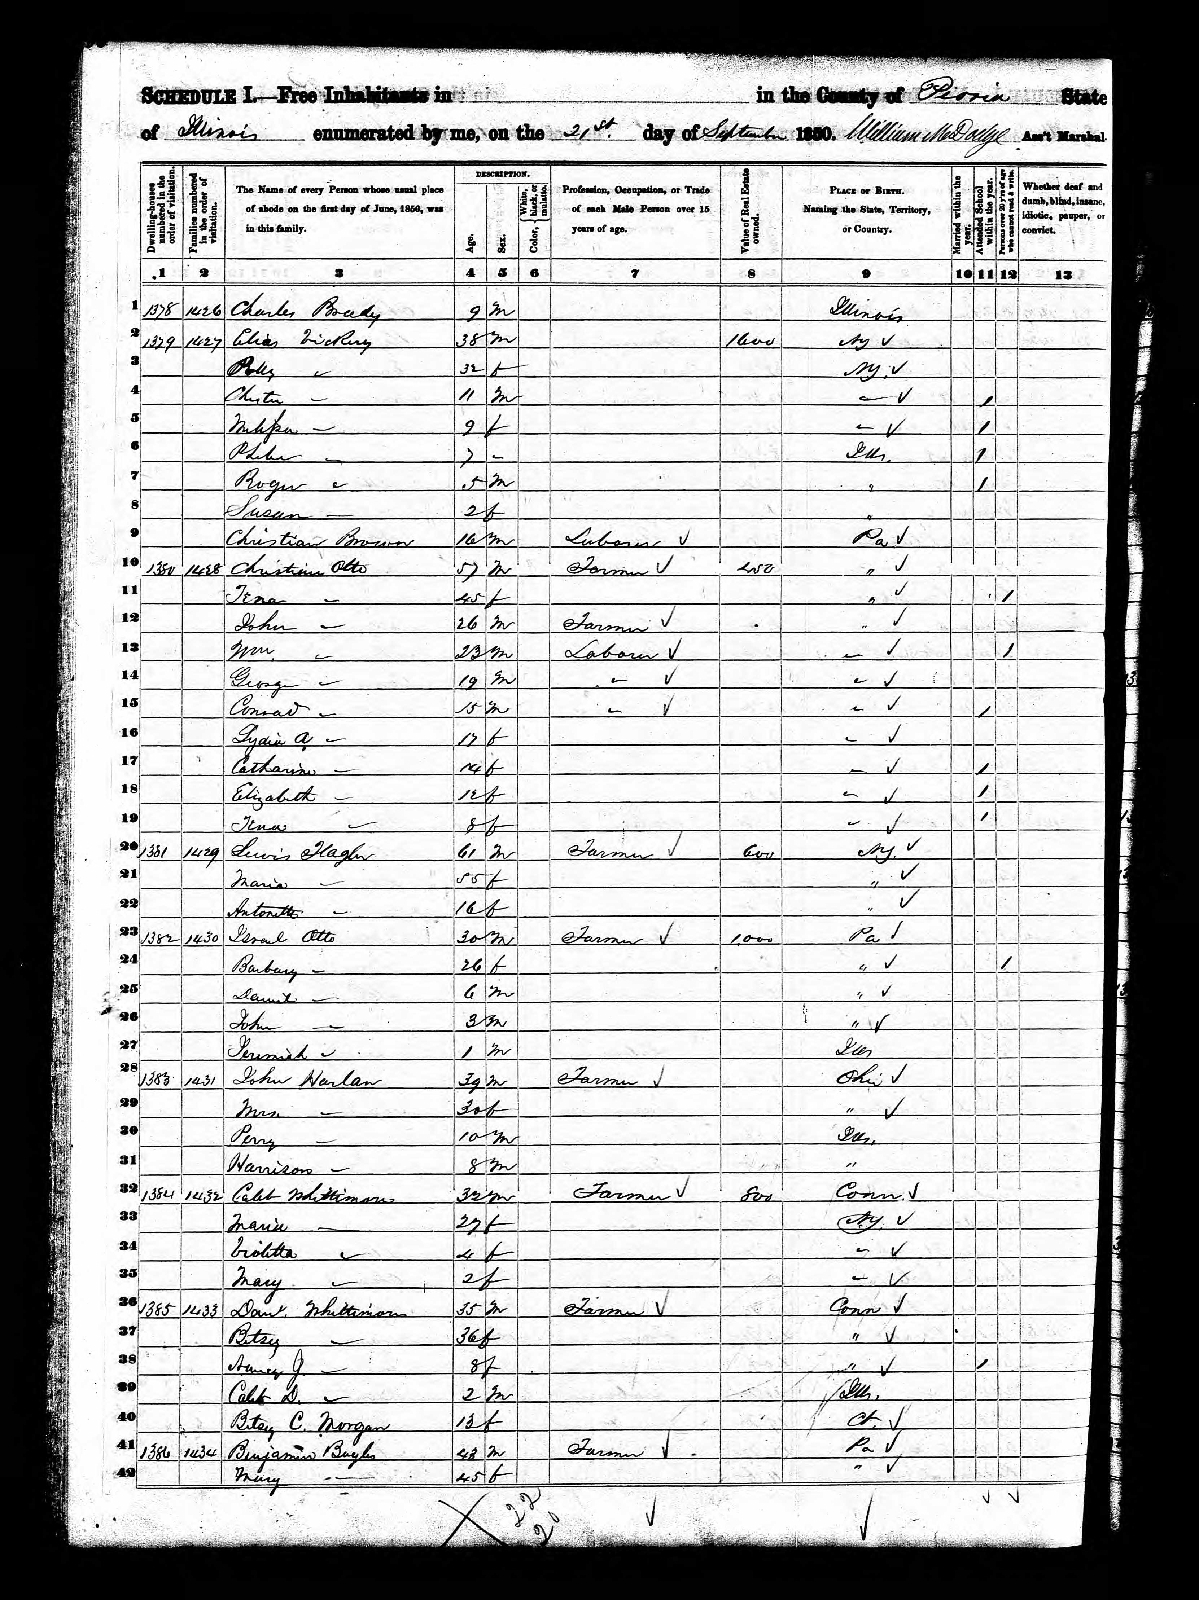 SCHEDULE I.—Free Inhabitants in in the County of Peoria State
of Illinois enumerated by me, on the 21st. day of September 1850. William M Dodge Ass't Marshal.
Dwelling-houses numbered in the order of visitation.
Families numbered in the order of visitation.
The Name of every Person whose usual place of abode on the first day of June, 1850, was in this family.
DESCRIPTION.
Age.
Sex.
Color, White, black, or mulatto.
Profession, Occupation, or Trade of each Male Person over 15 years of age.
Value of Real Estate owned.
PLACE OF BIRTH. Naming the State, Territory, or Country.
Married within the year.
Attended School within the year.
Persons over 20 y'rs of age who cannot read & write.
Whether deaf and dumb, blind, insane, idiotic, pauper, or convict.
1 2 3 4 5 6 7 8 9 10 11 12 13
1 1378 1426 Charles Brady 9 M Illinois
2 1379 1427 Elias Vickery 38 M 1600 NY ✓
3 Polly " 32 f NY. ✓
4 Chester " 11 M " ✓ 1
5 " 9 f " ✓ 1
6 Phebe " 7 " Ills. 1
7 Roger " 5 M " 1
8 Susan " 2 f "
9 Christian Brown 16 M Laborer ✓ Pa ✓
10 1380 1428 Christian Otto 57 M Farmer ✓ 450 " ✓
11 Tena " 45 f " ✓ 1
12 John " 26 M Farmer ✓ " ✓
13 Wm. " 23 M Laborer ✓ " ✓ 1
14 George " 19 M " ✓ " ✓
15 Conrad " 15 M " ✓ " ✓ 1
16 Lydia A. " 17 f " ✓
17 Catharine " 14 f " ✓ 1
18 Elizabeth " 12 f " ✓ 1
19 Tena " 8 f " ✓ 1
20 1381 1429 Lewis Flagler 61 M Farmer ✓ 600 NY. ✓
21 Maria " 55 f " ✓
22 Antonette " 16 f " ✓
23 1382 1430 Israel Otto 30 M Farmer ✓ 1000 Pa ✓
24 Barbary " 26 f " ✓ 1
25 Daniel " 6 M " ✓
26 John " 3 M " ✓
27 Jeremiah " 1 M Ills
28 1383 1431 John Harlan 39 M Farmer ✓ Ohio ✓
29 Mrs. " 30 f " ✓
30 Perry " 10 M Ills.
31 Harrison " 8 M "
32 1384 1432 Caleb Whittimore 32 M Farmer ✓ 800 Conn. ✓
33 Maria " 27 f NY. ✓
34 Violetta " 4 f " ✓
35 Mary " 2 f " ✓
36 1385 1433 Danl. Whittimore 35 M Farmer ✓ Conn ✓
37 Betsy " 36 f " ✓
38 Nancy J. " 8 f " ✓ 1
39 Caleb D. " 2 M Ills.
40 Betsy C. Morgan 13 f Ct. ✓
41 1386 1434 Benjamin Bayles 43 M Farmer ✓ Pa ✓
42 Mary " 45 f " ✓
22
20